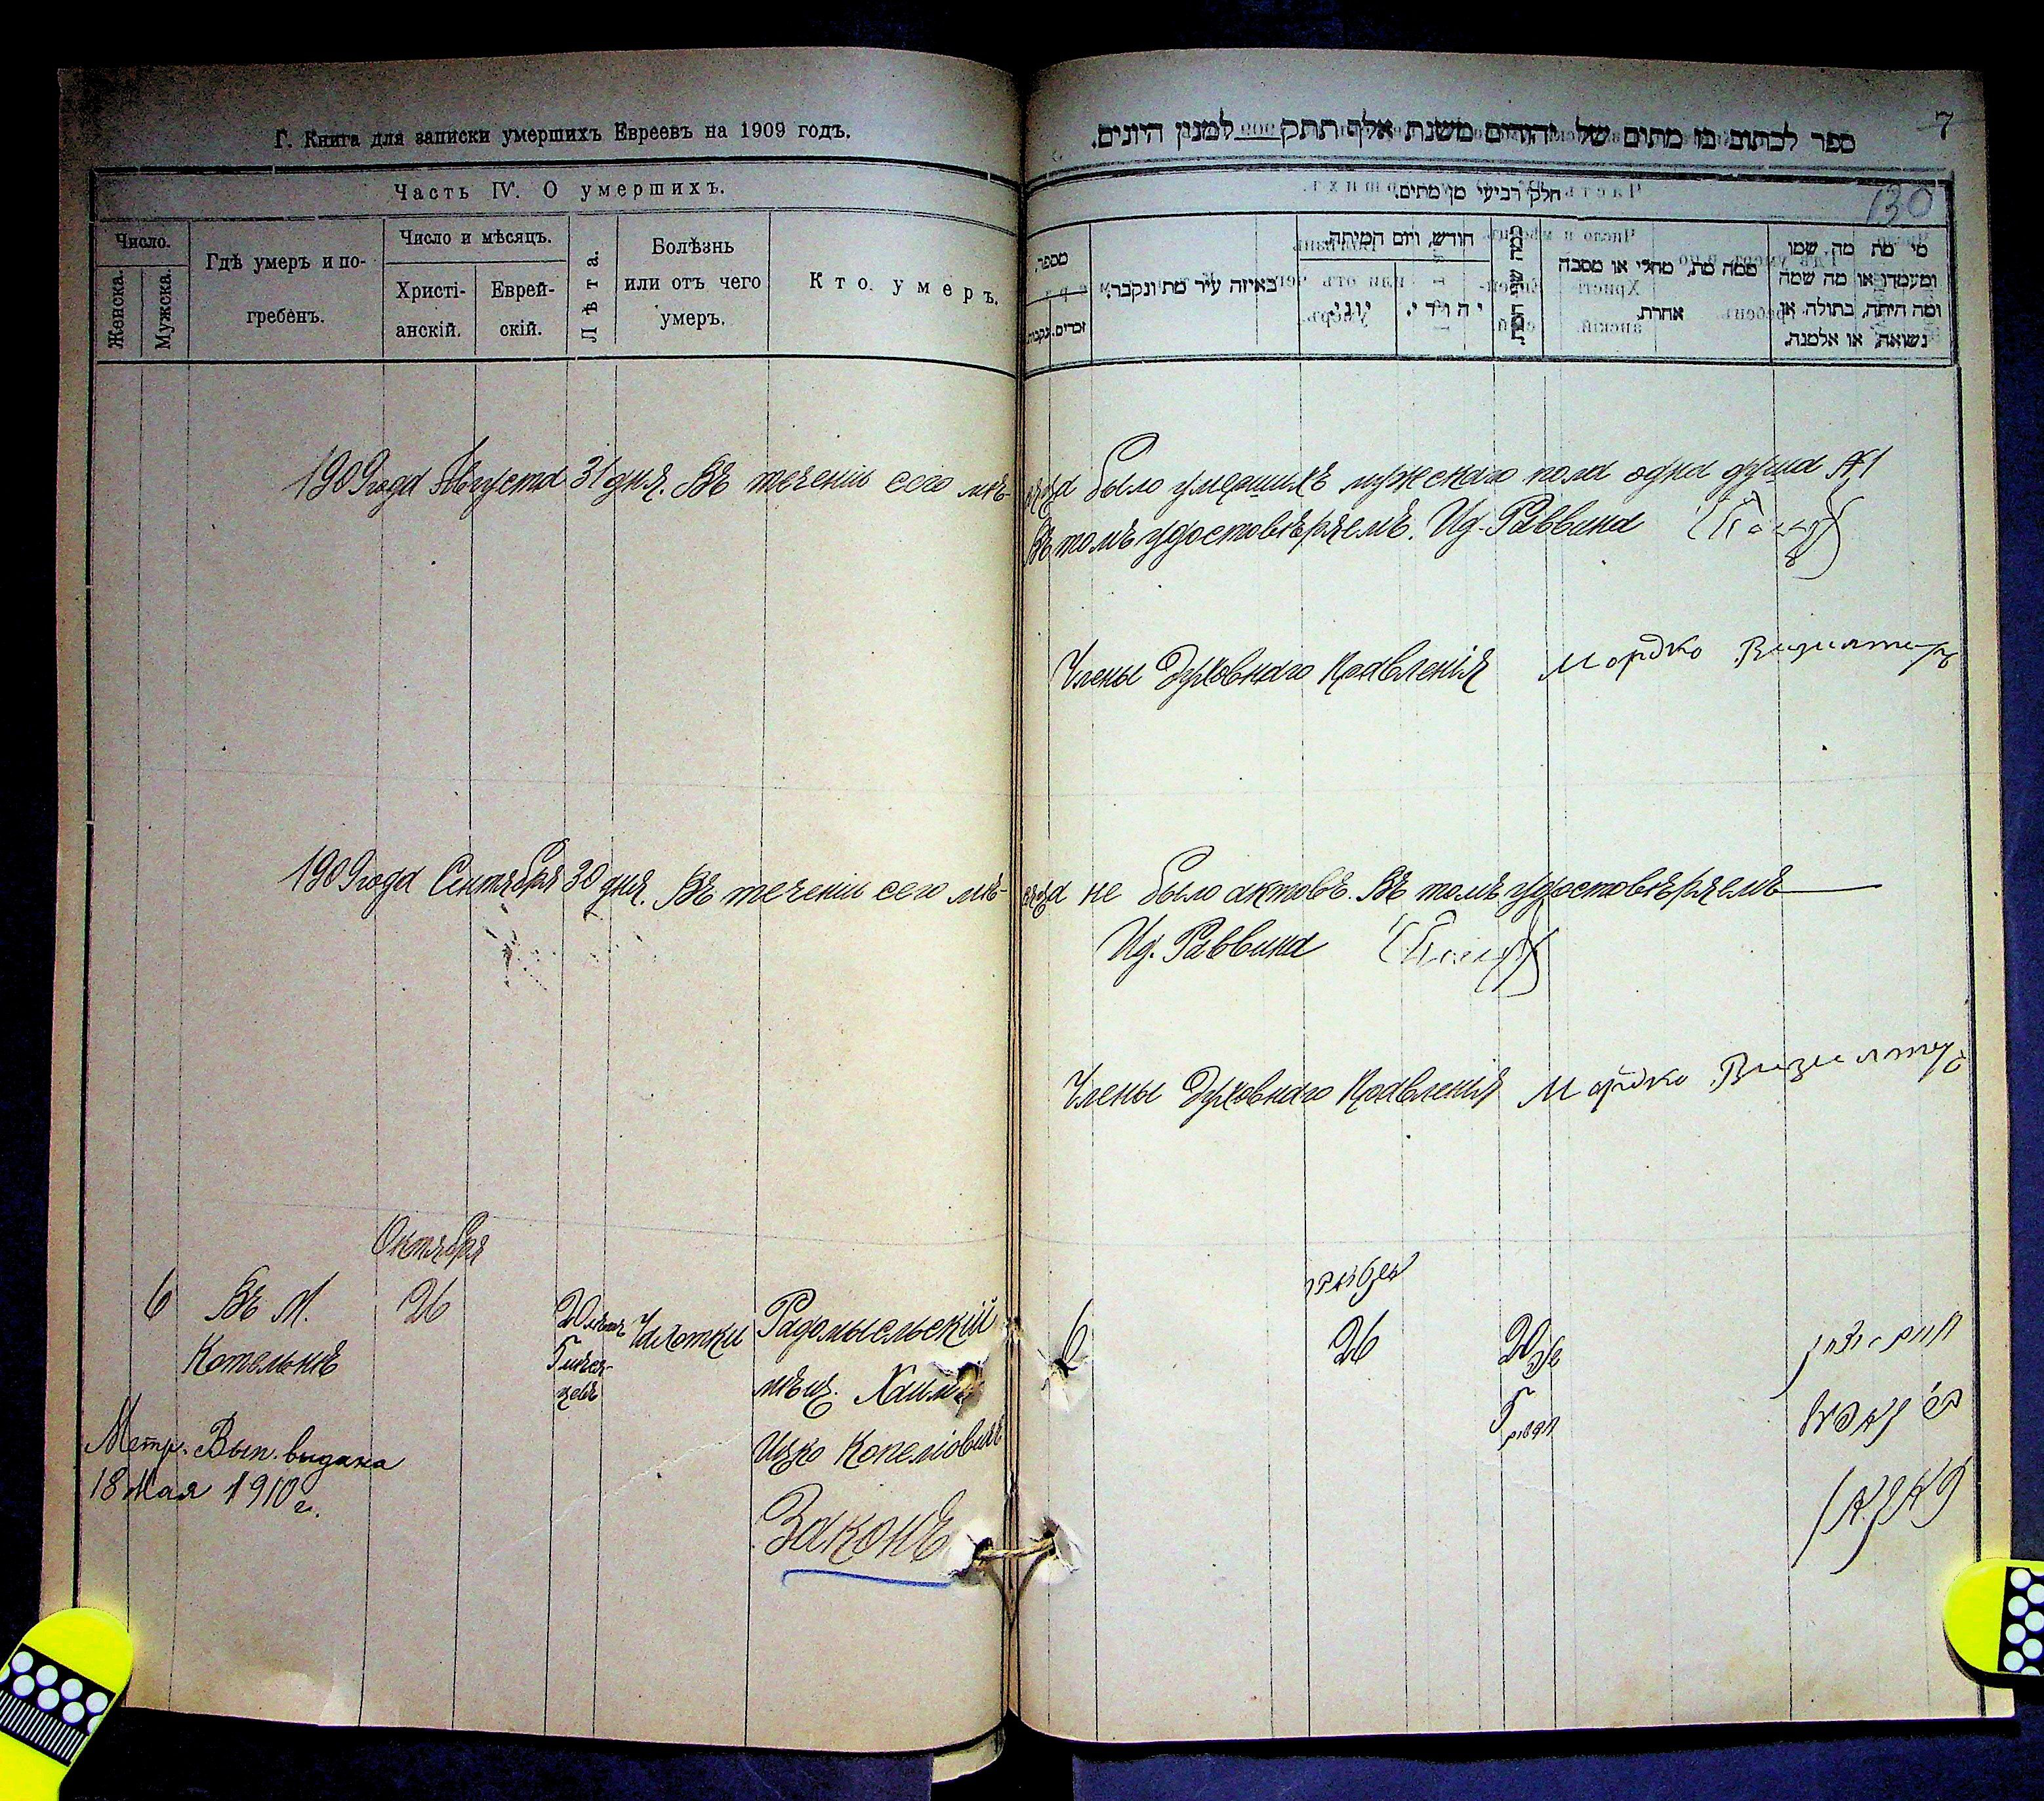 Г. Книга для записки умершихъ Евреевъ на 1909 годъ.
Часть IV. О умершихъ.
Число.
Женска.
Мужска.
Гдѣ умеръ и по-
гребенъ.
Число и мѣсяцъ.
Христі-
анскій.
Еврей-
скій.
Лѣта.
Болѣзнь
или отъ чего
умеръ.
Кто умеръ.
7
ספר לכתוב בו מתים של יהודים משנת אלף תתק למנין היונים.
130
חלק רביעי מן מתים.
מספר.
זכרים.
נקבות.
באיזה עיר מת ונקבר.
חודש, ויום המיתה.
יוני.
יהודי.
כמה שני המת.
ממה מת, מחלי או מסבה
אחרת.
מי מת מה שמו
ומעמדו או מה שמה
ומה היתה, בתולה או
נשואה, או אלמנה.
1909 года Августа 31 дня. Въ теченіи сего мѣ-сяца было умершихъ мужскаго пола одна душа №1
Въ томъ удостовѣряемъ. Ид. Раввина
Члены Духовнаго Правленія Мордко
1909 года Сентября 30 дня. Въ теченіи сего мѣ-сяца не было актовъ. Въ томъ удостовѣряемъ
Ид. Раввина
Члены Духовнаго Правленія Мордко
Октября
6 Въ М. 26 20 лѣтъ Чахотки Радомысльскій
Котельнѣ 5 мѣся-
цевъ
мѣщ. Хаимъ
Ицко Копеліовичъ
Законъ
Метр. Вып. выдана
18 Мая 1910 г.
6 26 20 שנה
5
חיים יצחק